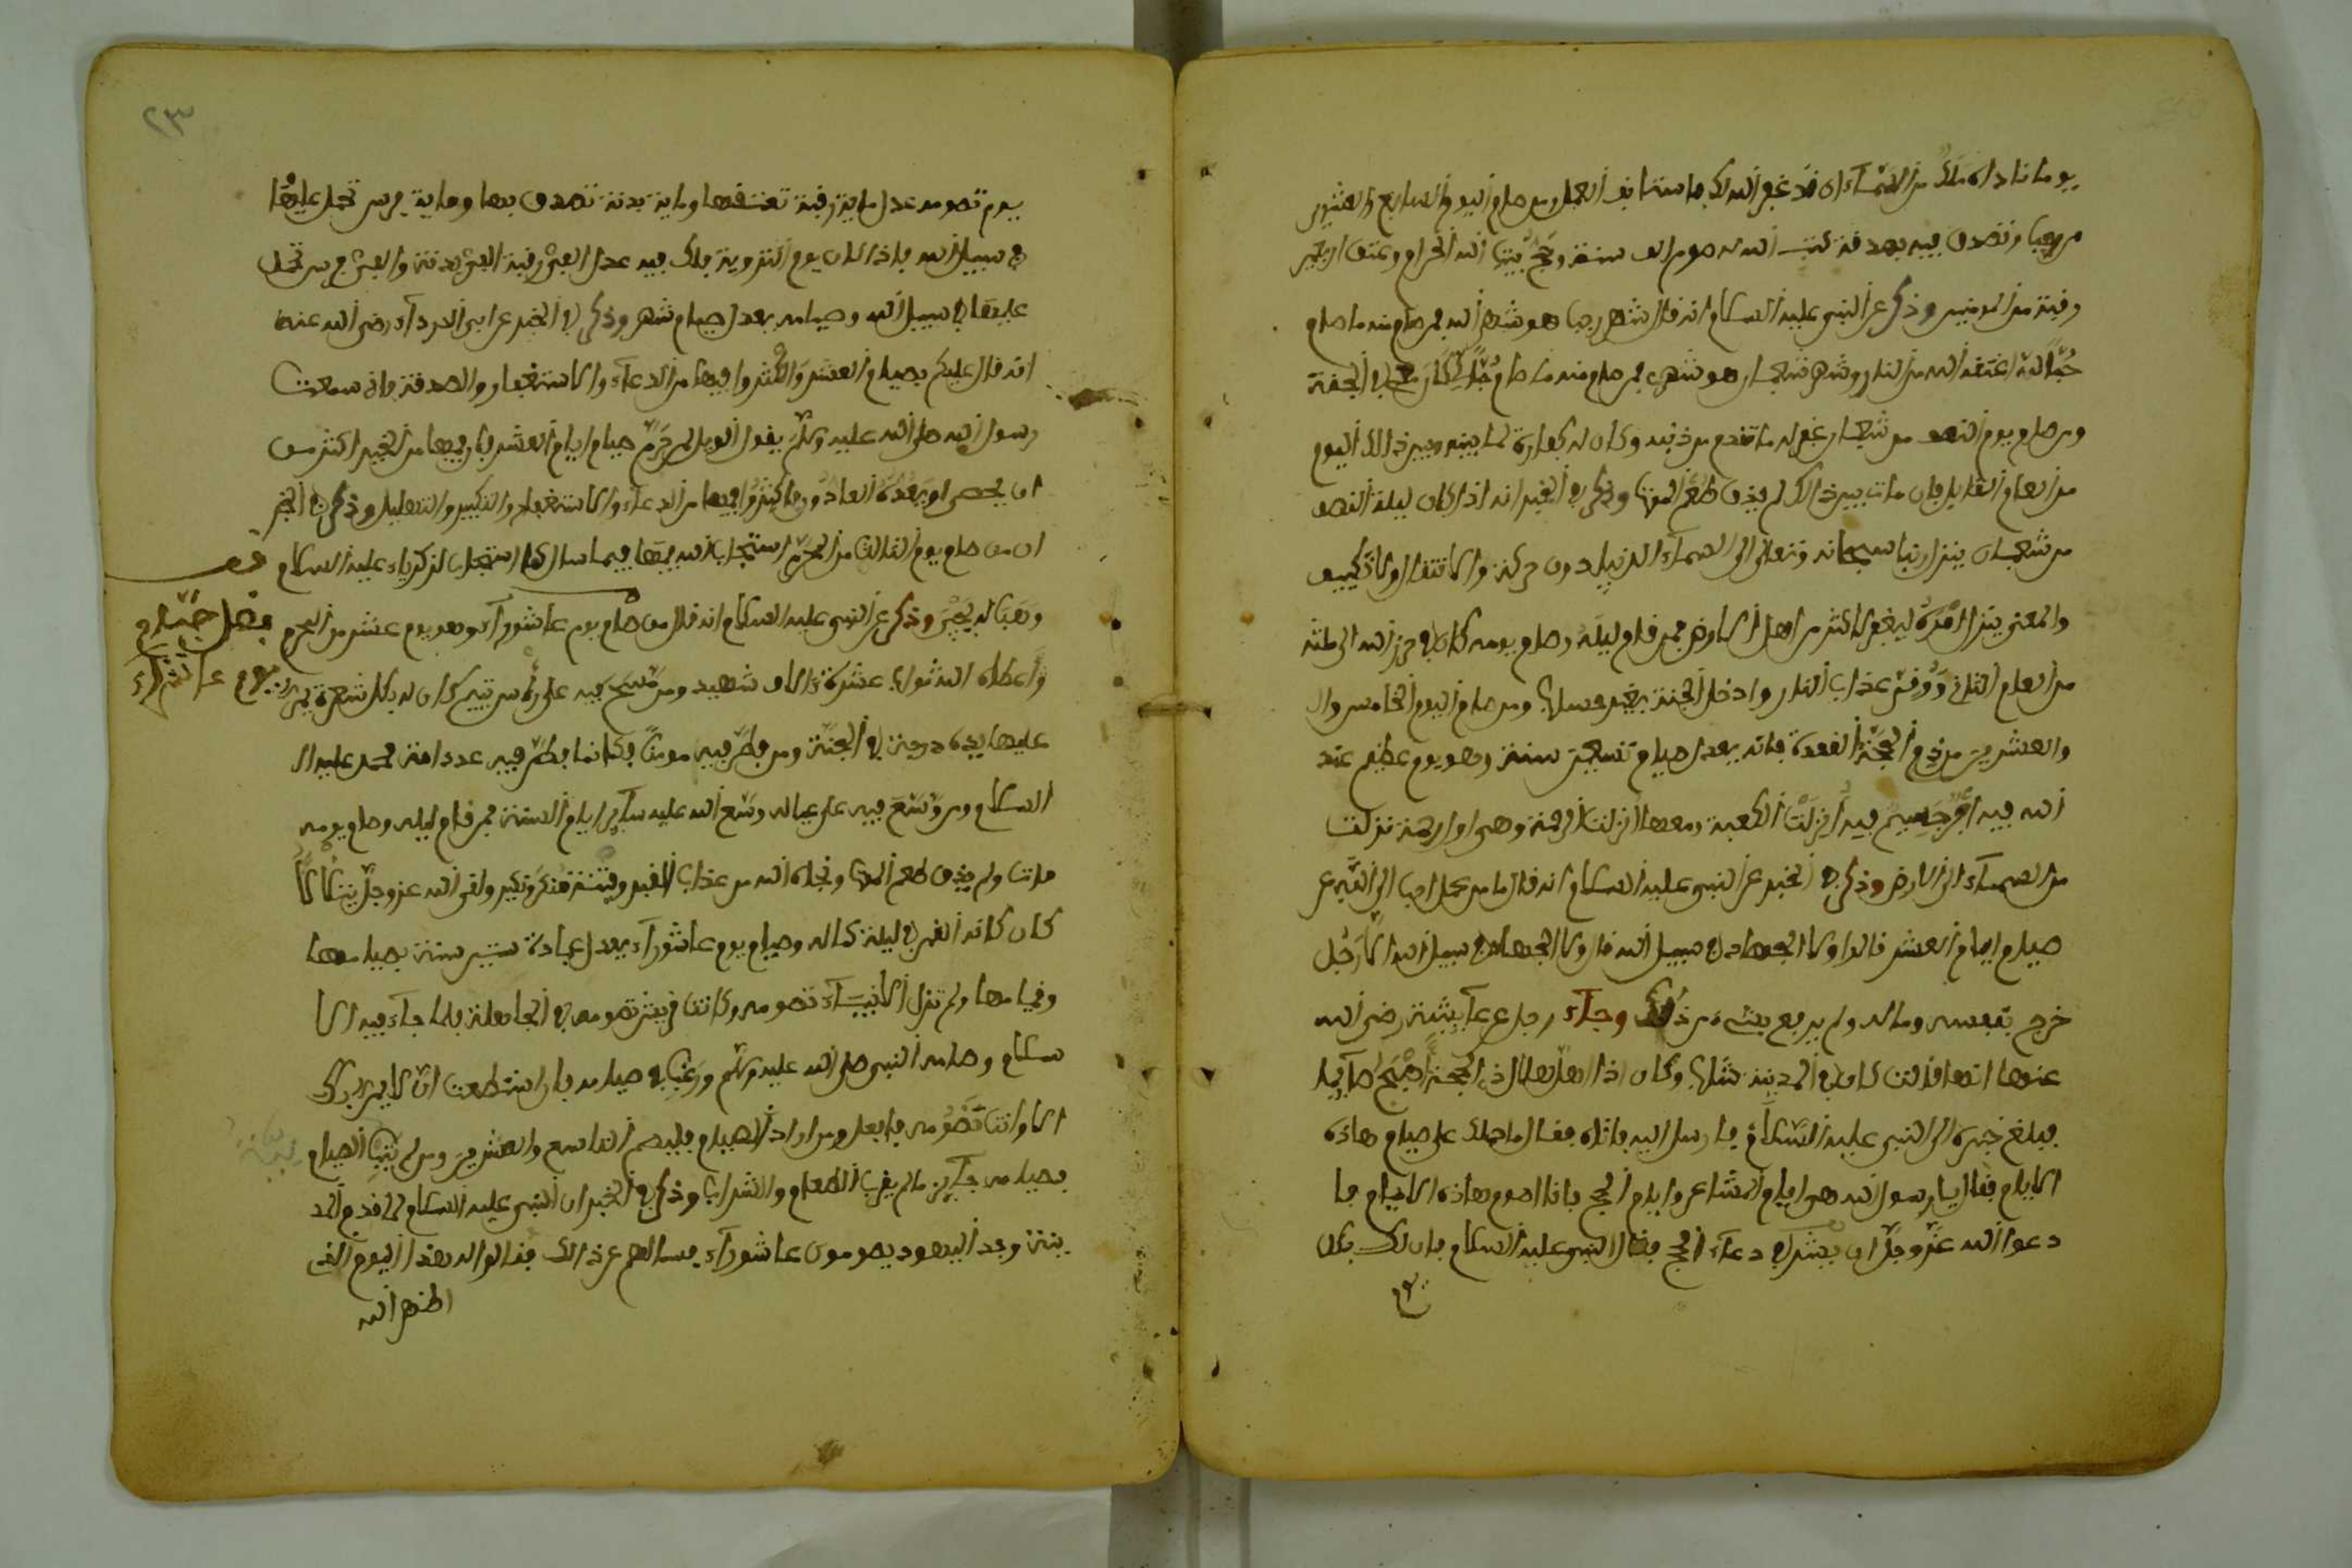 يوما ناداه ملك من السماء ان قد غفر الله لك فاستانف العمل ومن صام اليوم السابع والعشرين
من رجب وتصدق فيه بصدقة كتب الله له صوم الف سنة وحج بيت الله الحرام وعتق
رقبة من المومنين وذكر عن النبي عليه السلام انه قال شهر رجب هو شهر الله فمن صام منه ما صام
حبا لله اعتقه الله من النار وشهر شعبان هو شهري فمن صام منه ما صام حبا لي كان معي في الجنة
ومن صام يوم النصف من شعبان غفر له ما تقدم من ذنبه وكان له كفارة لما بينه وبين ذالك اليوم
من العام القابل فان مات بين ذالك لم يذق طعم الموت وذكر في الخبر انه اذا كان ليلة النصف
من شعبان ينزل ربنا سبحانه وتعالى الى السماء الدنيا بدون حركة ولا انتقال ولا تكييف
والمعنى ينزل امره ليغفر لاكثر من اهل الارض فمن قام ليله وصام يومه كان في حرز الله الى مثله
من العام الثاني ووقي عذاب النار وادخل الجنة بغير حساب ومن صام اليوم الخامس وال
والعشرين من ذي القعدة فانه يعدل صيام تسعين سنة وهو يوم عظيم عند
الله فيه امر جسيم فيه انزلت الكعبة ومعها انزلت الرحمة وهي اول رحمة نزلت
من السماء الى الارض وذكر في الخبر عن النبي عليه السلام انه قال ما من عمل احب الى الله من
صيام ايام العشر قالوا ولا الجهاد في سبيل الله قال ولا الجهاد في سبيل الله الا رجل
خرج بنفسه وماله ولم يرجع بشيء من ذلك وجاء رجل عن عآيشة رضي الله
عنها انها قالت كان في المدينة شاب وكان اذا اهل هلال ذي الحجة اصبح صآيما
فبلغ خبره الى النبي عليه السلام فارسل اليه فاتاه فقال ما حملك على صيام هاذه
الايام فقال يا رسول الله هي ايام المشاعر وايام الحج فانا اصوم هاذه الايام فا
دعوا الله عز وجل ان يشركني في دعاء الحج فقال النبي عليه السلام فان لك بكل
يوم
٢٣
يوم تصومه عدل ماية رقبة تعتقها وماية بدنة تصدق بها وماية فرس تحمل عليها
في سبيل الله فاذا كان يوم التروية فلك فيه عدل الف رقبة والف بدنة والف فرس تحمل
عليها في سبيل الله وصيامه يعدل صيام شهر وذكر في الخبر عن ابي الدرداء رضي الله عنه
انه قال عليكم بصيام العشر واكثروا فيها من الدعاء والاستغفار والصدقة فاني سمعت
رسول الله صلى الله عليه وسلم يقول الويل لمن حرم صيام ايام العشر فان فيها من الخير اكثر من
ان يحصى او يعده العادون فاكثروا فيها من الدعاء والاستغفار والتكبير والتهليل وذكر في الخبر
ان من صام يوم الثالث من المحرم استجاب الله له فيما سال كما استجاب لزكرياء عليه السلام
وهب له يحيى وذكر عن النبي عليه السلام انه قال من صام يوم عاشوراء وهو يوم عشر من المحرم
فصل صيام
يوم عاشوراء
اعطاه الله ثواب عشرة ءالاف شهيد ومن مسح فيه على راس يتيم كان له بكل شعرة تمر
عليها يده درجة في الجنة ومن فطر فيه مومنا فكانما فطر فيه عدد امة محمد عليه ال
السلام ومن وسع فيه على عياله وسع الله عليه سآير ايام السنة فمن قام ليله وصام يومه
مات ولم يذق طعم الموت ونجاه الله من عذاب القبر وفتنة منكر ونكير ولقي الله عز وجل
كان كانه القمر في ليلة كماله وصيام يوم عاشوراء يعدل عبادة ستين سنة بصيامها
وقيامها ولم تزل الانبياء تصومه وكانت قريش تصومه في الجاهلية فلما جاء فيه الا
سلام وصامه النبي صلى الله عليه وسلم ورغب في صيامه فان استطعت ان لا يمر بك
الا وانت تصومه فافعل ومن اراد الصيام فليصم التاسع والعشر ومن لم يبيت الصيام
فصيامه جآيز ما لم يقرب الطعام والشراب وذكر في الخبر ان النبي عليه السلام لما قدم المد
ينة وجد اليهود يصومون عاشوراء فسالهم عن ذالك فقالوا له هذا اليوم الذي
اظهر الله